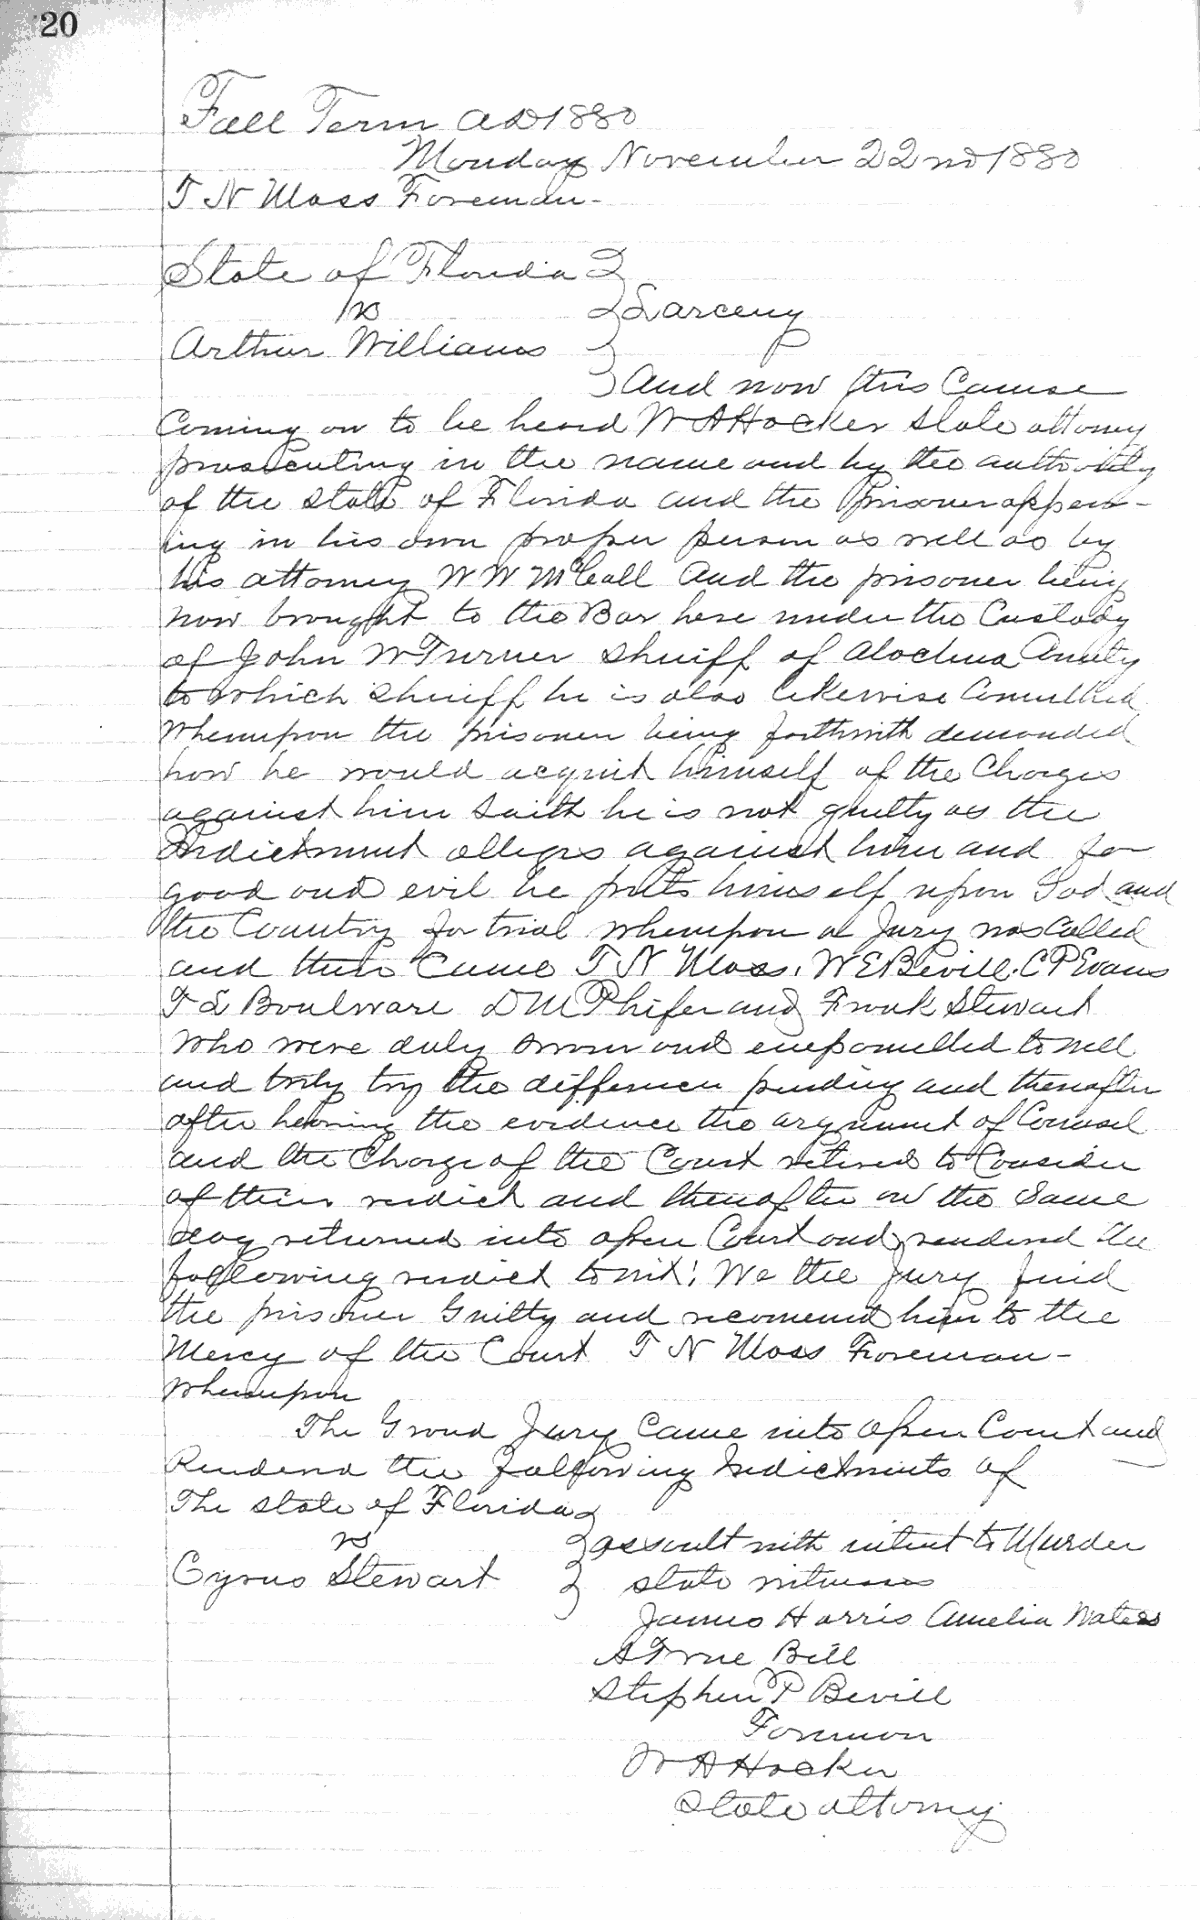 20
Fall Term AD 1880
Monday November 22nd 1880
T N Moss Foreman-
State of Florida
vs
Larceny
Arthur Williams
And now this Cause
Coming on to be heard W A Hocker State attorney
prosecuting in the name and by the authority
of the State of Florida and the prisoner appear-
ing in his own proper person as well as by
his attorney W W McCall And the prisoner being
now brought to the Bar here under the Custody
of John W Turner Sheriff of Alachua County
to which Sheriff he is also likewise Committed
Whereupon the prisoner being forthwith demanded
how he would acquit himself of the Charges
against him Saith he is not guilty as the
Indictment alleges against him and for
good and evil he puts himself upon God and
the Country for trial whereupon a Jury was Called
and then Came T N Moss, W E Bevill. C P Evans
T S Boulware D M Phifer and Frank Stewart
Who were duly sworn and empannelled to well
and truly try the difference pending and thereafter
after hearing the evidence the argument of Counsel
and the Charge of the Court retired to Consider
of their verdict and thereafter on the Same
day returned into open Court and rendered the
following verdict to wit: We the Jury find
the prisoner Guilty and recommend him to the
Mercy of the Court T N Moss Foreman-
Whereupon
The Grand Jury Came into Open Court and
Rendered the following Indictments of
The State of Florida
vs
assault with intent to Murder
Cyrus Stewart
state witnesses
James Harris Amelia Waters
A True Bill
Stephen P Bevill
Foreman
W A Hocker
State attorney